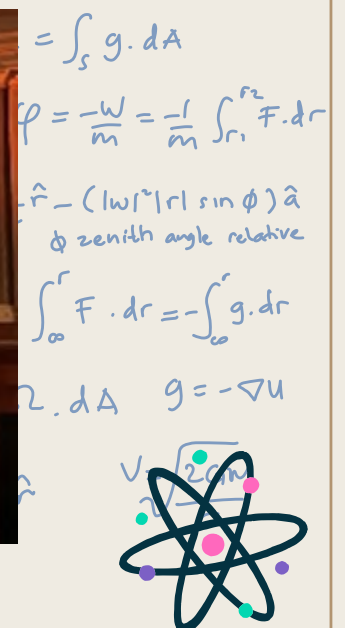 = ∫_S g. dA
φ = -W/m = -1/m ∫_{r₁}^{r₂} F.dr
r̂ - (|w|²|r| sin ϕ) â
ϕ zenith angle relative
∫_∞^r F . dr = -∫_∞^r g.dr
. dA g = -∇U